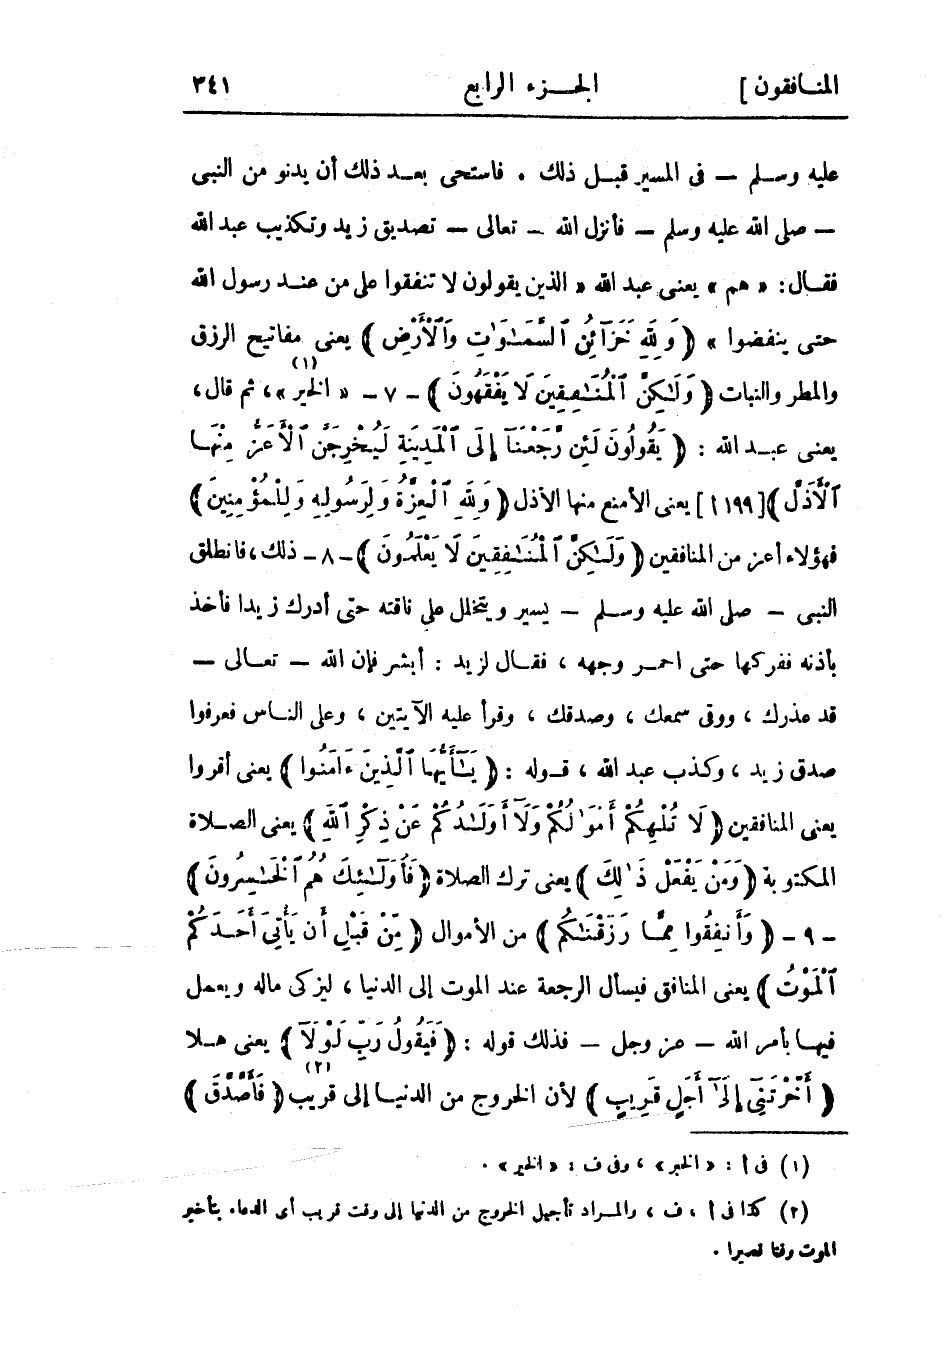 المنافقون ] الجزء الرابع ٣٤١
عليه وسلم — فى المسير قبل ذلك . فاستحى بعد ذلك أن يدنو من النبى
— صلى الله عليه وسلم — فأنزل الله — تعالى — تصديق زيد وتكذيب عبد الله
فقال : « هم » يعنى عبد الله « الذين يقولون لا تنفقوا على من عند رسول الله
حتى ينفضوا » ﴿ وَلِلَّهِ خَزَآئِنُ ٱلسَّمَـٰوَٰتِ وَٱلْأَرْضِ ﴾ يعنى مفاتيح الرزق
والمطر والنبات ﴿ وَلَـٰكِنَّ ٱلْمُنَـٰفِقِينَ لَا يَفْقَهُونَ ﴾ - ٧ - « الخير (١) » ، ثم قال ،
يعنى عبد الله : ﴿ يَقُولُونَ لَئِن رَّجَعْنَآ إِلَى ٱلْمَدِينَةِ لَيُخْرِجَنَّ ٱلْأَعَزُّ مِنْهَا
ٱلْأَذَلَّ ﴾ [ ١٩٩ أ ] يعنى الأمنع منها الأذل ﴿ وَلِلَّهِ ٱلْعِزَّةُ وَلِرَسُولِهِ وَلِلْمُؤْمِنِينَ ﴾
فهؤلاء أعز من المنافقين ﴿ وَلَـٰكِنَّ ٱلْمُنَـٰفِقِينَ لَا يَعْلَمُونَ ﴾ - ٨ - ذلك ، فانطلق
النبى — صلى الله عليه وسلم — يسير ويتخلل على ناقته حتى أدرك زيدا فأخذ
بأذنه ففركها حتى احمر وجهه ، فقال لزيد : أبشر فإن الله — تعالى —
قد عذرك ، ووقى سمعك ، وصدقك ، وقرأ عليه الآيتين ، وعلى الناس فعرفوا
صدق زيد ، وكذب عبد الله ، قوله : ﴿ يَـٰٓأَيُّهَا ٱلَّذِينَ ءَامَنُوا ﴾ يعنى أقروا
يعنى المنافقين ﴿ لَا تُلْهِكُمْ أَمْوَٰلُكُمْ وَلَآ أَوْلَـٰدُكُمْ عَنْ ذِكْرِ ٱللَّهِ ﴾ يعنى الصلاة
المكتوبة ﴿ وَمَنْ يَفْعَلْ ذَٰلِكَ ﴾ يعنى ترك الصلاة ﴿ فَأُولَـٰٓئِكَ هُمُ ٱلْخَـٰسِرُونَ ﴾
- ٩ - ﴿ وَأَنفِقُوا مِمَّا رَزَقْنَـٰكُم ﴾ من الأموال ﴿ مِّنْ قَبْلِ أَن يَأْتِىَ أَحَدَكُمُ
ٱلْمَوْتُ ﴾ يعنى المنافق فيسأل الرجعة عند الموت إلى الدنيا ، ليزكى ماله ويعمل
فيها بأمر الله — عز وجل — فذلك قوله : ﴿ فَيَقُولَ رَبِّ لَوْلَآ ﴾ يعنى هلا
﴿ أَخَّرْتَنِىٓ إِلَىٰٓ أَجَلٍ قَرِيبٍ ﴾ لأن الخروج من الدنيا إلى قريب (٢) ﴿ فَأَصَّدَّقَ ﴾
(١) فى أ : « الخير » ، وفى ف : « الخير » .
(٢) كذا فى أ ، ف ، والمراد تأجيل الخروج من الدنيا إلى وقت قريب أى الدعاء بتأخير
الموت وقتا قصيرا .